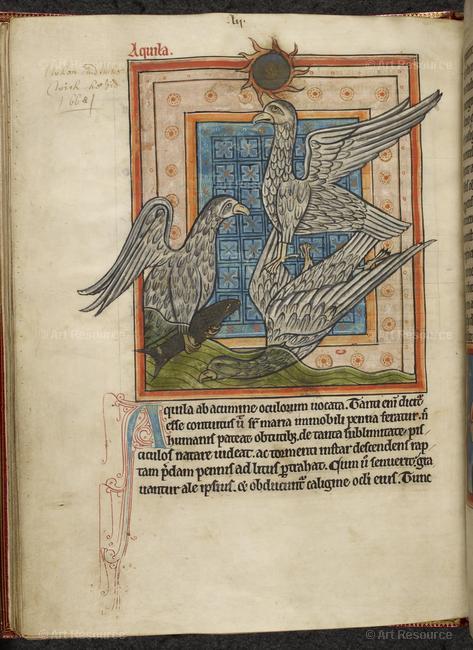 Aquila.
1681
Aquila ab acumine oculorum vocata. Tanti eni dicit
esse contutus ut sr maria immobili penna feratur. n
humanis pateat obtutib; de tanta sublimitate pis
ciculos natare videat. ac tormenti instar descendens rap
tam pdam pennis ad litus ptrahat. Cum u senuerit gra
uantur ale ipsius. & obducunt caligine oculi eius. Tunc
© Art Resource
© Art Resource
© Art Resource
© Art Resource
© Art Resource
© Art Resource